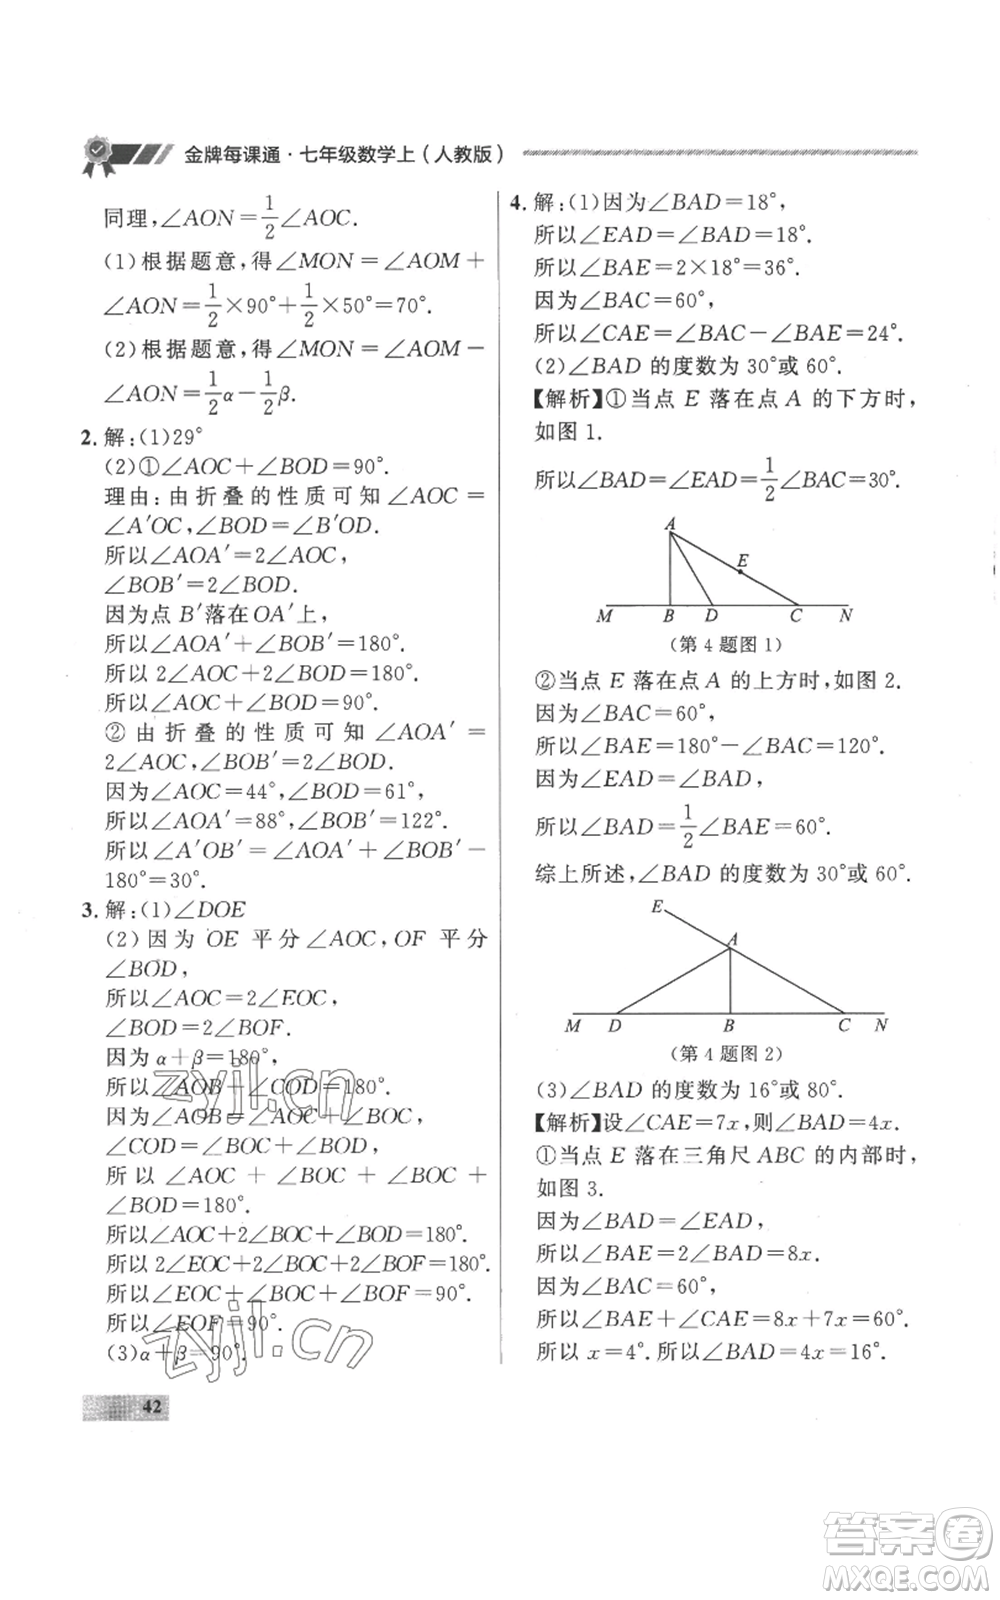 金牌每课通·七年级数学上(人教版)
同理,∠AON=1/2∠AOC.
(1)根据题意,得∠MON=∠AOM+
∠AON=1/2×90°+1/2×50°=70°.
(2)根据题意,得∠MON=∠AOM-
∠AON=1/2α-1/2β.
2. 解:(1)29°
(2)①∠AOC+∠BOD=90°.
理由:由折叠的性质可知∠AOC=
∠A′OC,∠BOD=∠B′OD.
所以∠AOA′=2∠AOC,
∠BOB′=2∠BOD.
因为点B′落在OA′上,
所以∠AOA′+∠BOB′=180°.
所以2∠AOC+2∠BOD=180°.
所以∠AOC+∠BOD=90°.
②由折叠的性质可知∠AOA′=
2∠AOC,∠BOB′=2∠BOD.
因为∠AOC=44°,∠BOD=61°,
所以∠AOA′=88°,∠BOB′=122°.
所以∠A′OB′=∠AOA′+∠BOB′-
180°=30°.
3. 解:(1)∠DOE
(2)因为OE平分∠AOC,OF平分
∠BOD,
所以∠AOC=2∠EOC,
∠BOD=2∠BOF.
因为α+β=180°,
所以∠AOB+∠COD=180°.
因为∠AOB=∠AOC+∠BOC,
∠COD=∠BOC+∠BOD,
所以∠AOC+∠BOC+∠BOC+
∠BOD=180°.
所以∠AOC+2∠BOC+∠BOD=180°.
所以2∠EOC+2∠BOC+2∠BOF=180°.
所以∠EOC+∠BOC+∠BOF=90°.
所以∠EOF=90°.
(3)α+β=90°.
42
4. 解:(1)因为∠BAD=18°,
所以∠EAD=∠BAD=18°.
所以∠BAE=2×18°=36°.
因为∠BAC=60°,
所以∠CAE=∠BAC-∠BAE=24°.
(2)∠BAD的度数为30°或60°.
【解析】①当点E落在点A的下方时,
如图1.
所以∠BAD=∠EAD=1/2∠BAC=30°.
A
E
M B D C N
(第4题图1)
②当点E落在点A的上方时,如图2.
因为∠BAC=60°,
所以∠BAE=180°-∠BAC=120°.
因为∠EAD=∠BAD,
所以∠BAD=1/2∠BAE=60°.
综上所述,∠BAD的度数为30°或60°.
E
A
M D B C N
(第4题图2)
(3)∠BAD的度数为16°或80°.
【解析】设∠CAE=7x,则∠BAD=4x.
①当点E落在三角尺ABC的内部时,
如图3.
因为∠BAD=∠EAD,
所以∠BAE=2∠BAD=8x.
因为∠BAC=60°,
所以∠BAE+∠CAE=8x+7x=60°.
所以x=4°.所以∠BAD=4x=16°.
zyjl.cn
zyjl.cn
答案圈
MXQE.COM